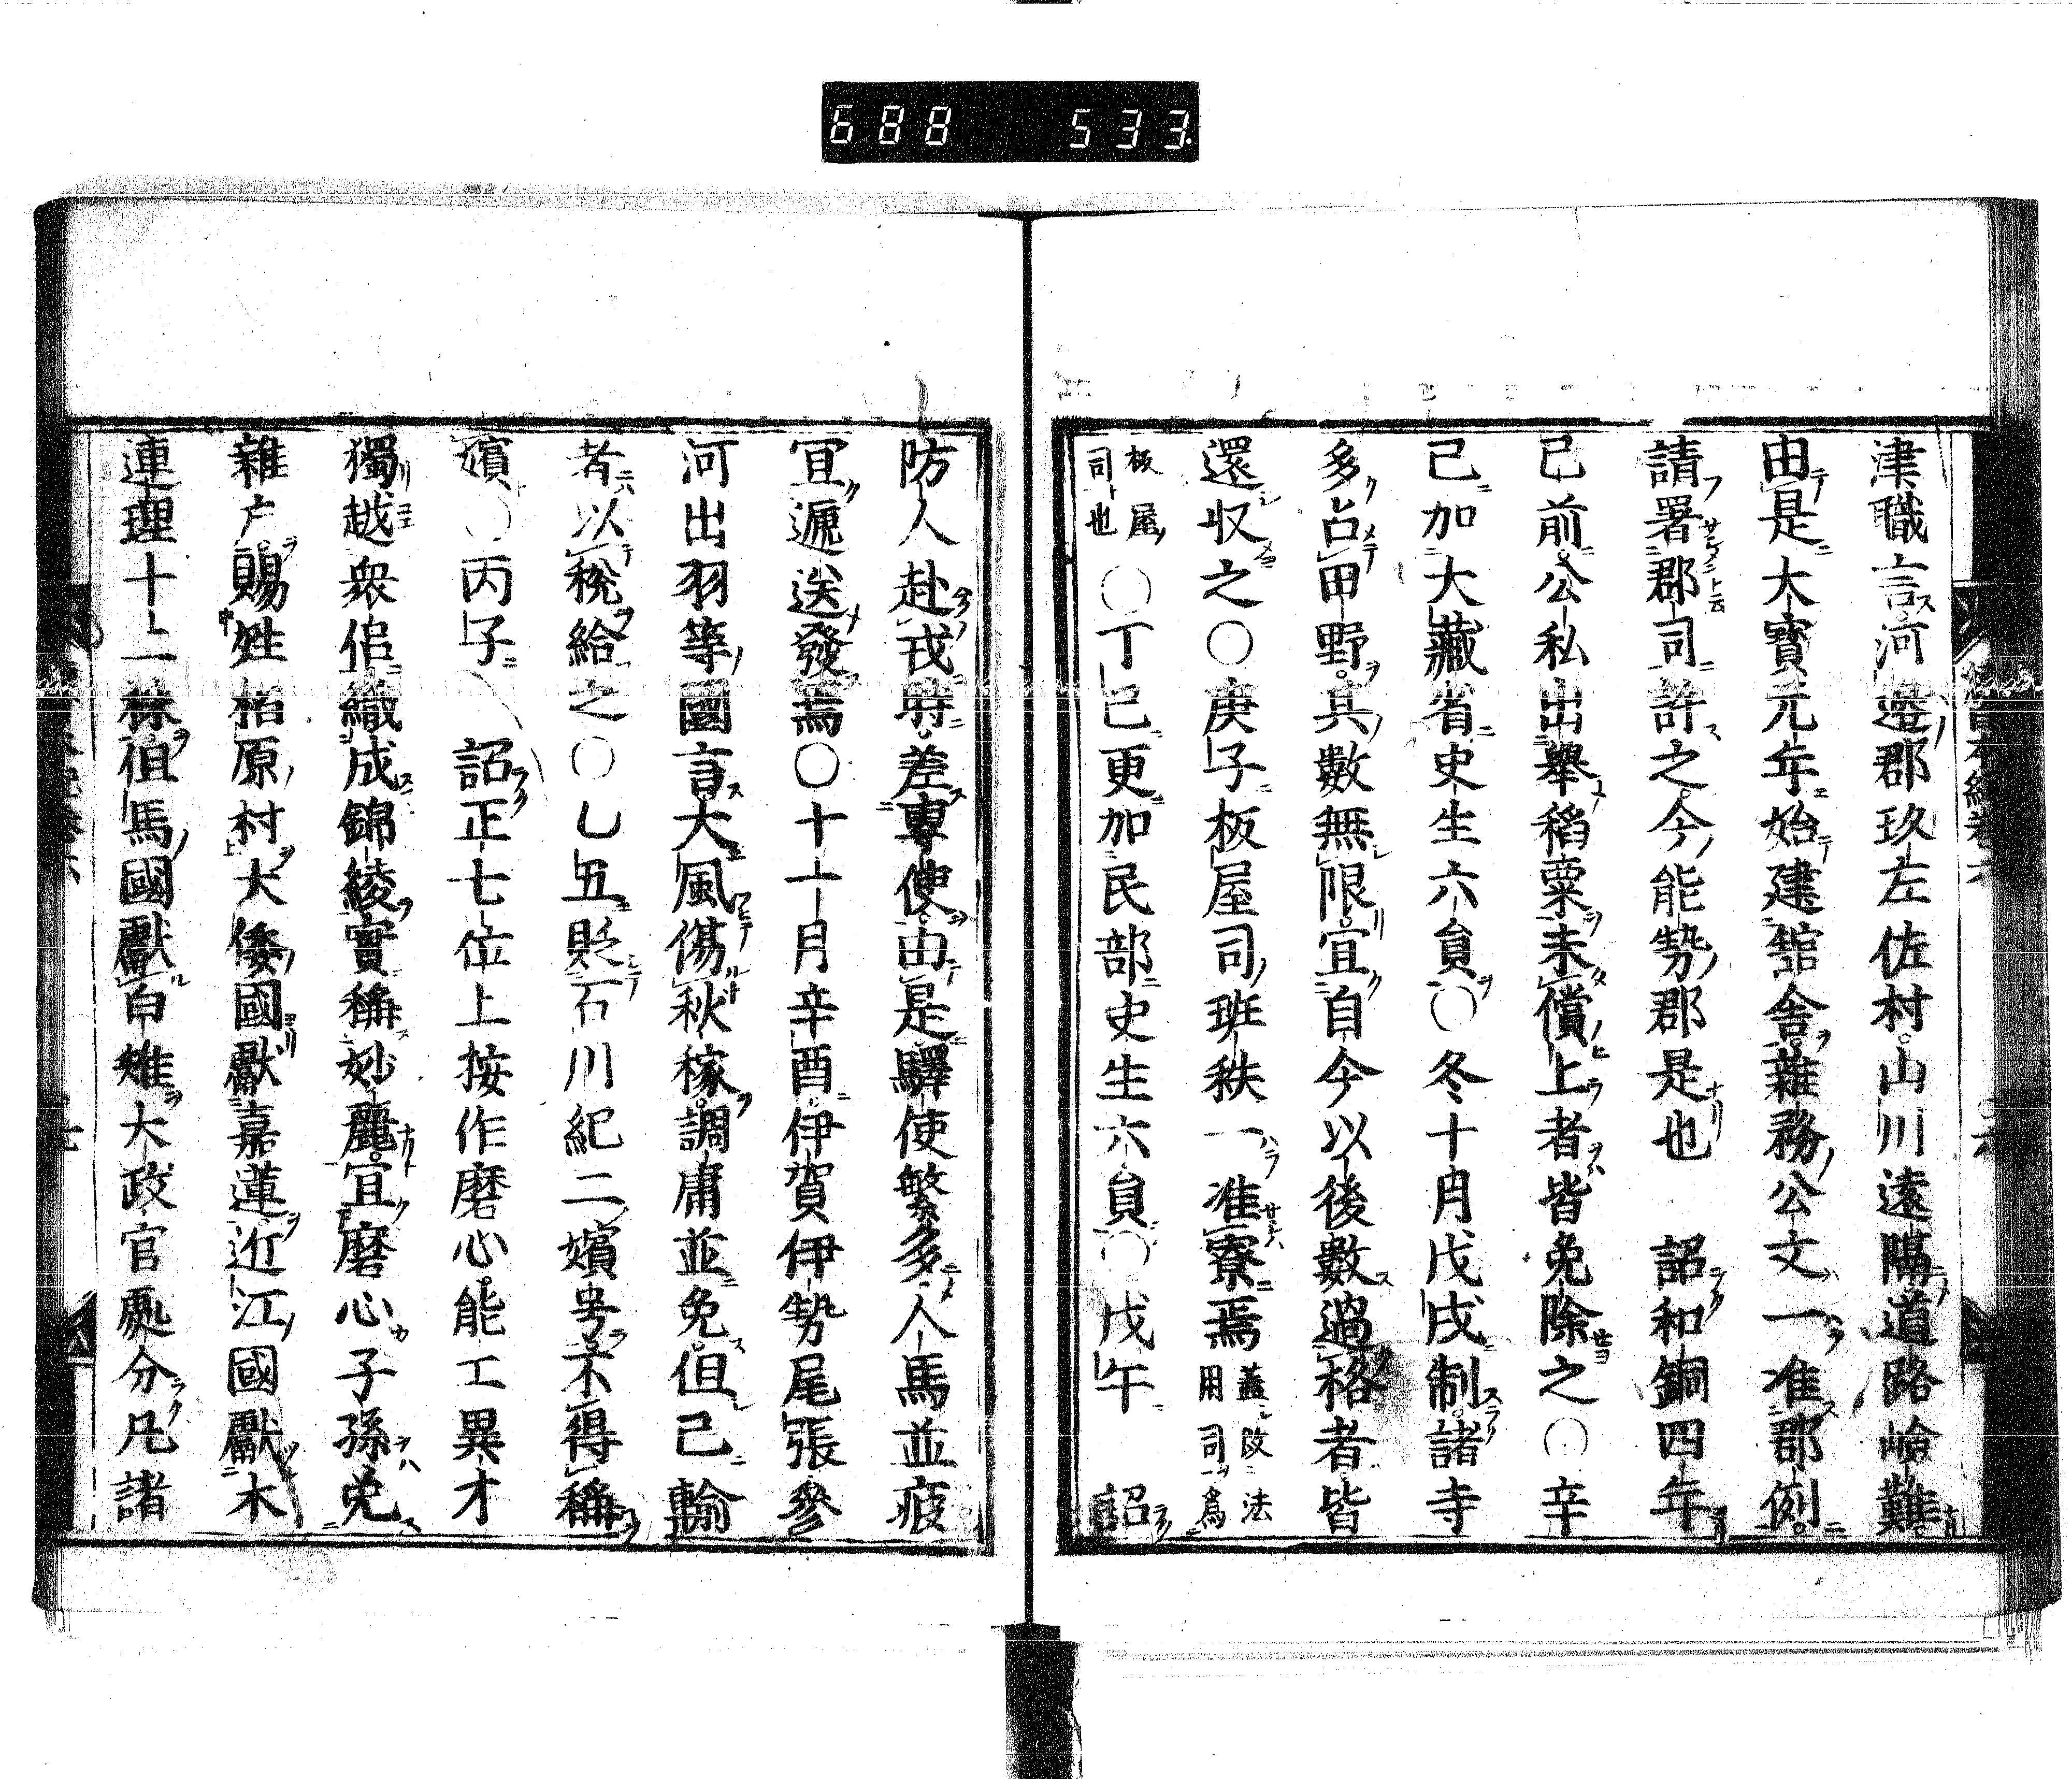 688 533
津職言河邊郡玖左佐村山川遠隔道路嶮難
由是大寶元年始建舘舎雜務公文一准郡例
請署郡司許之今能勢郡是也 詔和銅四年
已前公私出擧稻粟未償上者皆免除之〇辛
已加大藏省史生六貟〇冬十月戊戌制諸寺
多占田野其數無限宜自今以後數過格者皆
還收之〇庚子板屋司班秩一准寮焉蓋改法用司爲
板屋司也〇丁已更加民部史生六貟〇戊午 詔
防人赴戎時差專使由是驛使繁多人馬並疲
宜遞送發焉〇十一月辛酉伊賀伊勢尾張參
河出羽等國言大風傷秋稼調庸並免但已輸
者以税給之〇乙丑貶石川紀二嬪号不得稱
嬪〇丙子 詔正七位上按作磨心能工異才
獨越衆侶織成錦綾實稱妙麗宜磨心子孫免
雜戸賜姓栢原村大倭國獻嘉蓮近江國獻木
連理十二株但馬國獻白雉大政官處分凡諸